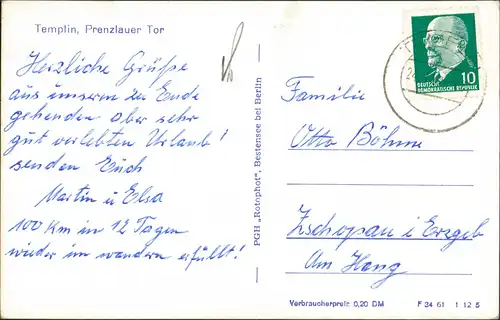 Templin, Prenzlauer Tor
Herzliche Grüße
aus unserm zu Ende
gehenden aber sehr
gut verlebten Urlaub!
senden Euch
Martin u Elsa
100 Km in 12 Tagen
wieder im wandern erfüllt!
PGH „Rotophot", Bestensee bei Berlin
10
DEUTSCHE
DEMOKRATISCHE REPUBLIK
Familie
Otto Böhme
Zschopau i Erzgeb
Am Hang
Verbraucherpreis 0,20 DM F 34 61 1 12 5